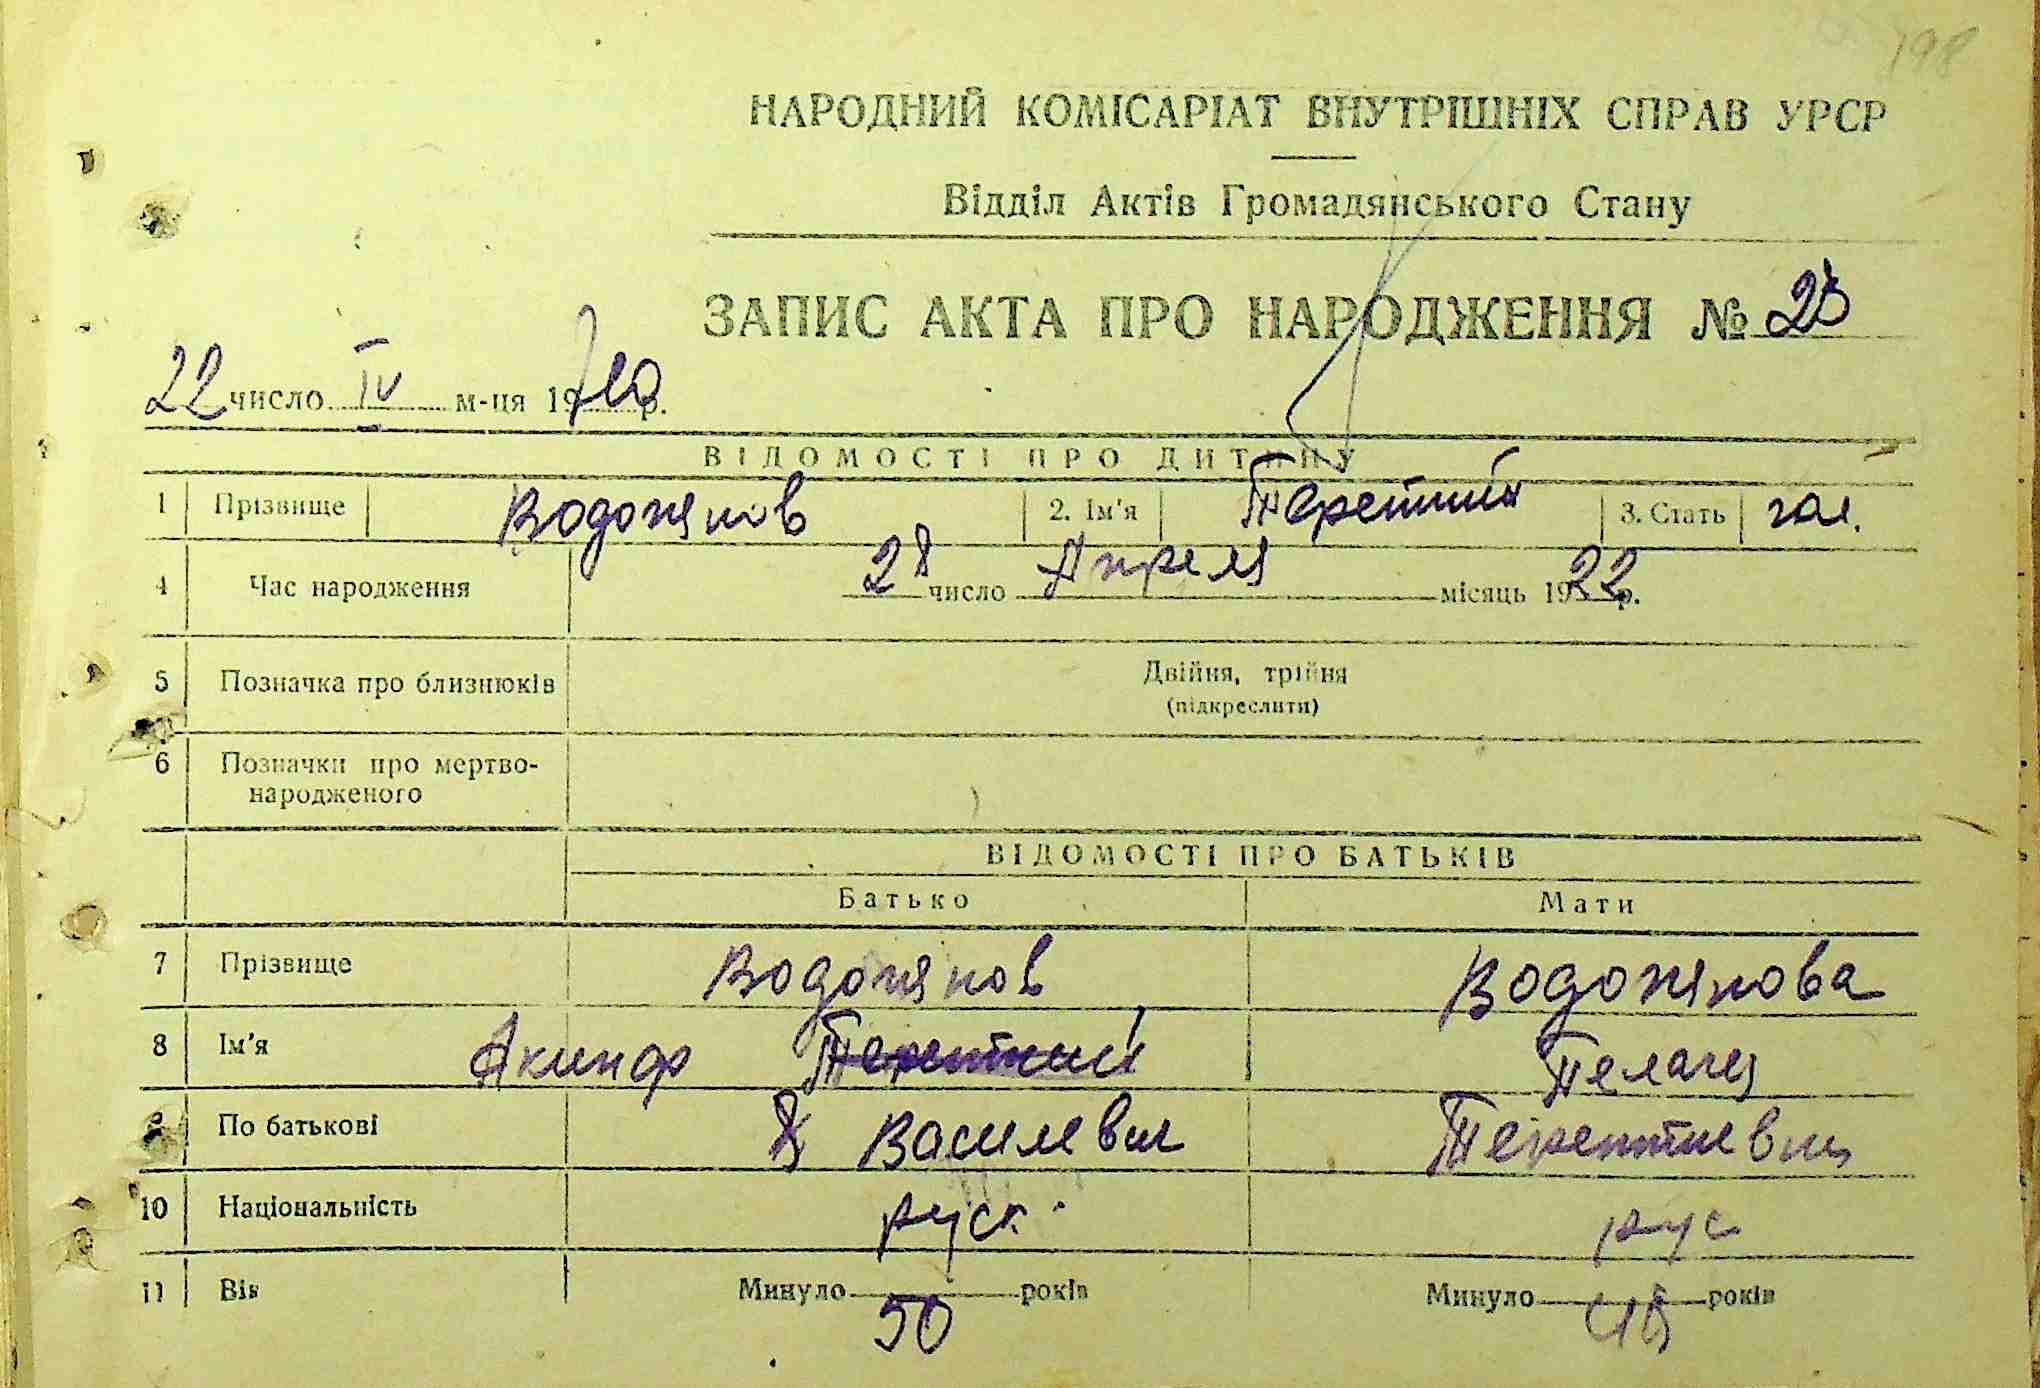 198
НАРОДНИЙ КОМІСАРІАТ ВНУТРІШНІХ СПРАВ УРСР
Відділ Актів Громадянського Стану
ЗАПИС АКТА ПРО НАРОДЖЕННЯ № 23
22 число IV м-ця 19 р.
ВІДОМОСТІ ПРО ДИТИНУ
1 Прізвище Водопянов 2. Ім'я Терентий 3. Стать
4 Час народження 28 число Апреля місяць 1922 р.
5 Позначка про близнюків Двійня, трійня
(підкреслити)
6 Позначки про мертво-
народженого
ВІДОМОСТІ ПРО БАТЬКІВ
Батько Мати
7 Прізвище Водопянов Водопянова
8 Ім'я Акинф Терентий Пелагея
9 По батькові Василевич Терентиевна
10 Національність руск. рус
11 Вік Минуло 50 років Минуло років